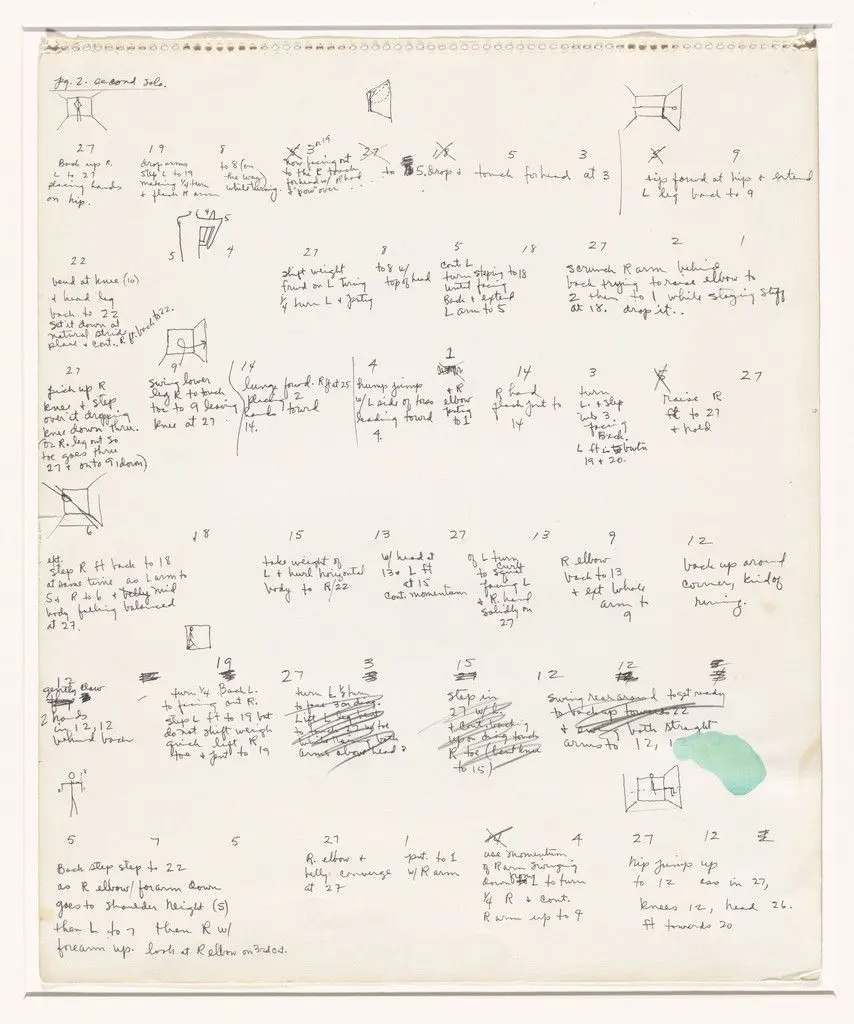 pg. 2. second solo.
27 19 8 3 27 18 5 3 9
Back up R.
L to 27
placing hands
on hip.
drop arms
step L to 19
making 1/4 turn
+ flesh R arm
to 8 (on
the way)
while turning.
now facing out
to the R touch
forhead w/ R hand
+ "pow" over
to
5. drop + touch forhead at 3
tip forward at hip + extend
L leg back to 9
4 5
22 5 4 27 8 5 18 27 2 1
bend at knee (10)
+ head leg
back to 22
set it down at
natural stride
place + cont. R ft. back to 22.
shift weight
frwd on L turing
1/4 turn L +
to 8 w/
top of head
cont L
turn steping to 18
until facing
Back + extend
L arm to 5
scrunch R arm behind
back trying to raise elbow to
2 then to 1 while staying stiff
at 18. drop it..
27 9 14 4 1 14 3 27
pick up R
knee + step
over it dropping
knee down thru.
(or R. leg out so
toe goes thru
27 + onto 9, down)
swing lower
leg R to touch
toe to 9 leaving
knee at 27
lunge forwd. R ft at 25
placing 2
hands towrd
14.
hump jump
w/ L side of torso
leading toward
4.
+ R
elbow
to 1
R hand
to
14
turn
L. + step
into 3.
facing
Back.
L ft btwn
19 + 20.
raise R
ft to 27
+ hold
6 18 15 13 27 13 9 12
ext.
step R ft back to 18
at same time as L arm to
5 + R to 6 + belly mid
body feeling balanced
at 27.
take weight of
L + hurl horizontal
body to R/22
w/ head at
13 + L ft
at 15
cont. momentum
of L turn
to squat
facing L
+ R. hand
solidly on
27
R elbow
back to 13
+ ext whole
arm to
9
back up around
corner, kind of
running.
12 19 27 3 15 12 12
gently claw
2 hands
in 12, 12
behind back
turn 1/4 Back L.
to facing out R.
step L ft to 19 but
do not shift weigh
quick lift R
toe + to 19
turn L 1/2 turn
arms above head
step in
27 w/ L.
R toe (bent knee
to 15)
swing rear around to get ready
to back up towards 22
+ both straight
arms to 12, 1
5 7 5 27 1 4 27 12
Back step step to 22
as R elbow/forarm down
goes to shoulder height (5)
then L to 7 then R w/
forearm up. look at R elbow on 3rd ct.
R. elbow +
belly converge
at 27
put. to 1
w/ R arm
use momentum
of R arm swinging
down L to turn
1/4 R + cont.
R arm up to 9
hip jump up
to 12 ass in 27,
knees 12, head 26.
ft towards 20